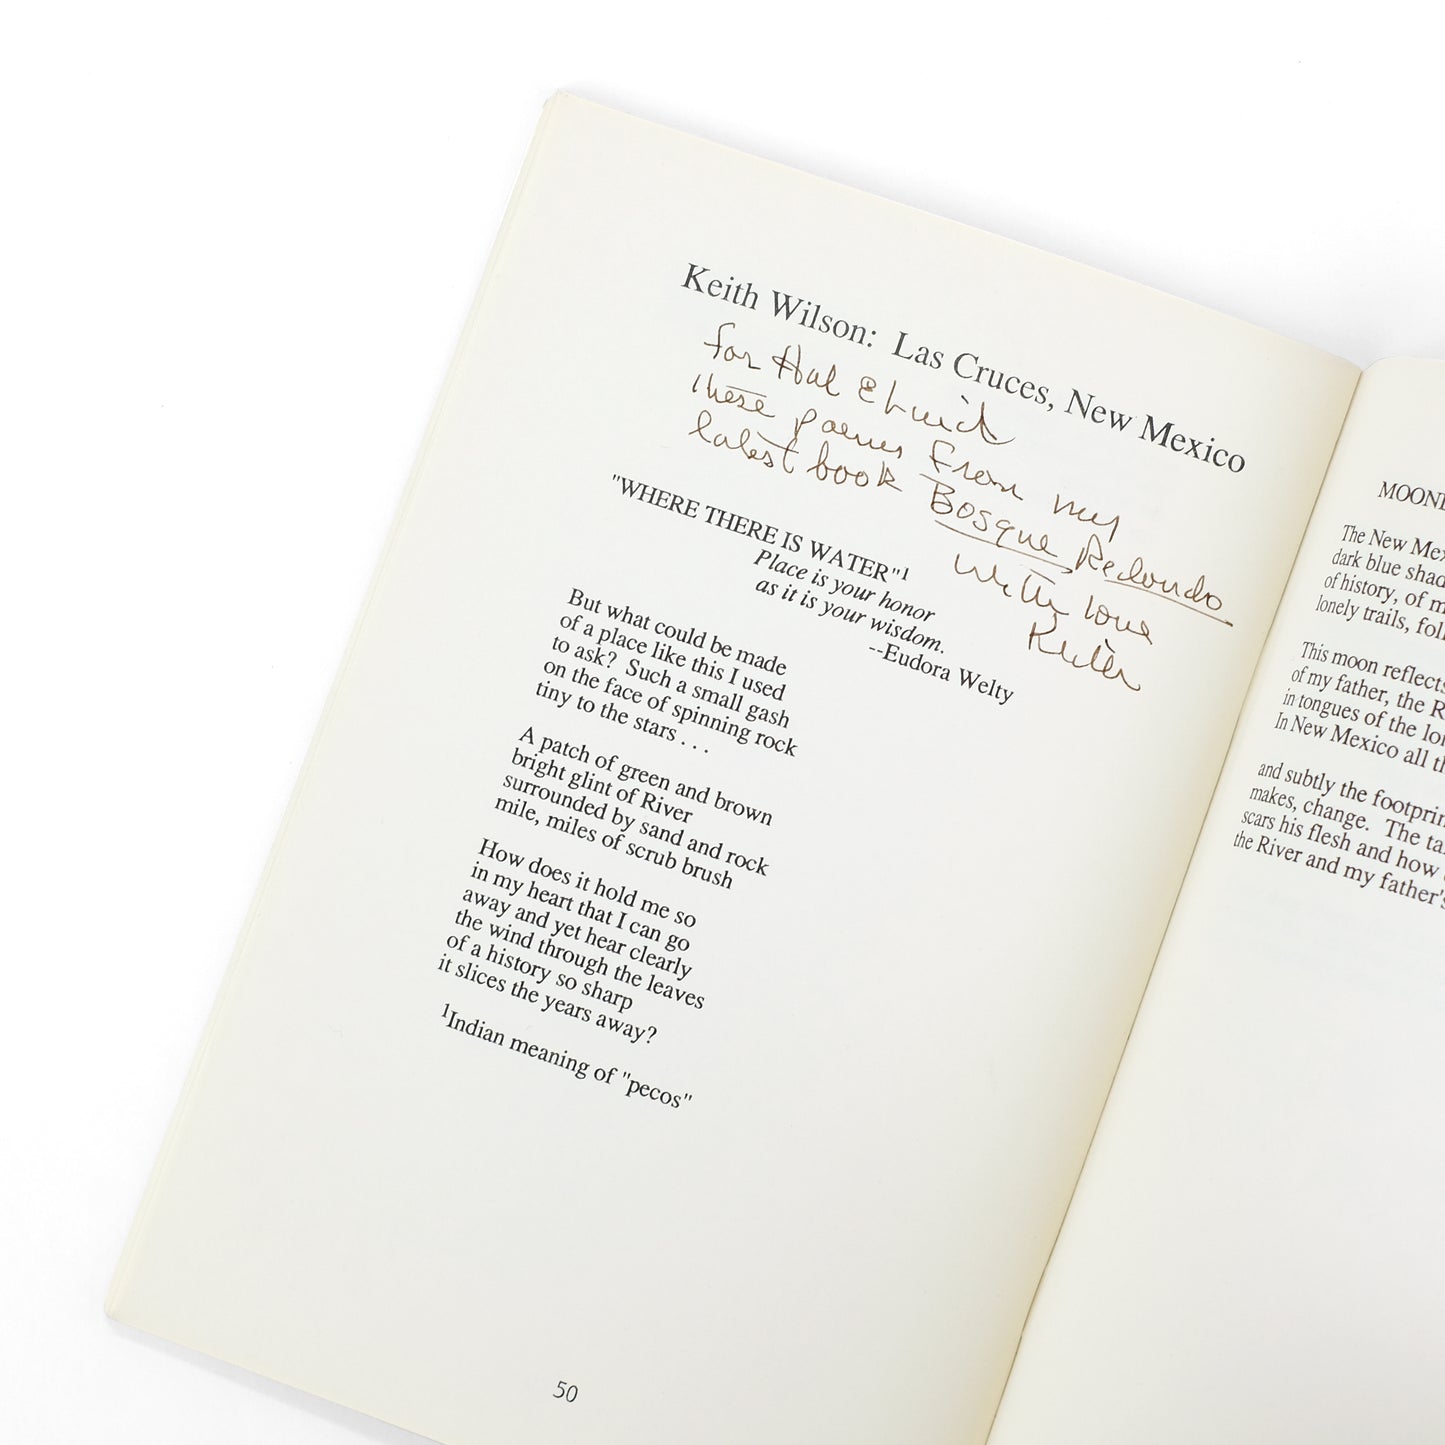 Keith Wilson: Las Cruces, New Mexico
for Hal
These poems from my
latest book Bosque Redondo
With love
Keith
"WHERE THERE IS WATER"¹
Place is your honor
as it is your wisdom.
--Eudora Welty
But what could be made
of a place like this I used
to ask? Such a small gash
on the face of spinning rock
tiny to the stars . . .
A patch of green and brown
bright glint of River
surrounded by sand and rock
mile, miles of scrub brush
How does it hold me so
in my heart that I can go
away and yet hear clearly
the wind through the leaves
of a history so sharp
it slices the years away?
¹Indian meaning of "pecos"
50
The New Mex
dark blue shad
of history, of m
lonely trails, fol
This moon reflects
of my father, the R
in tongues of the lo
In New Mexico all th
and subtly the footprin
makes, change. The ta
scars his flesh and how
the River and my father's